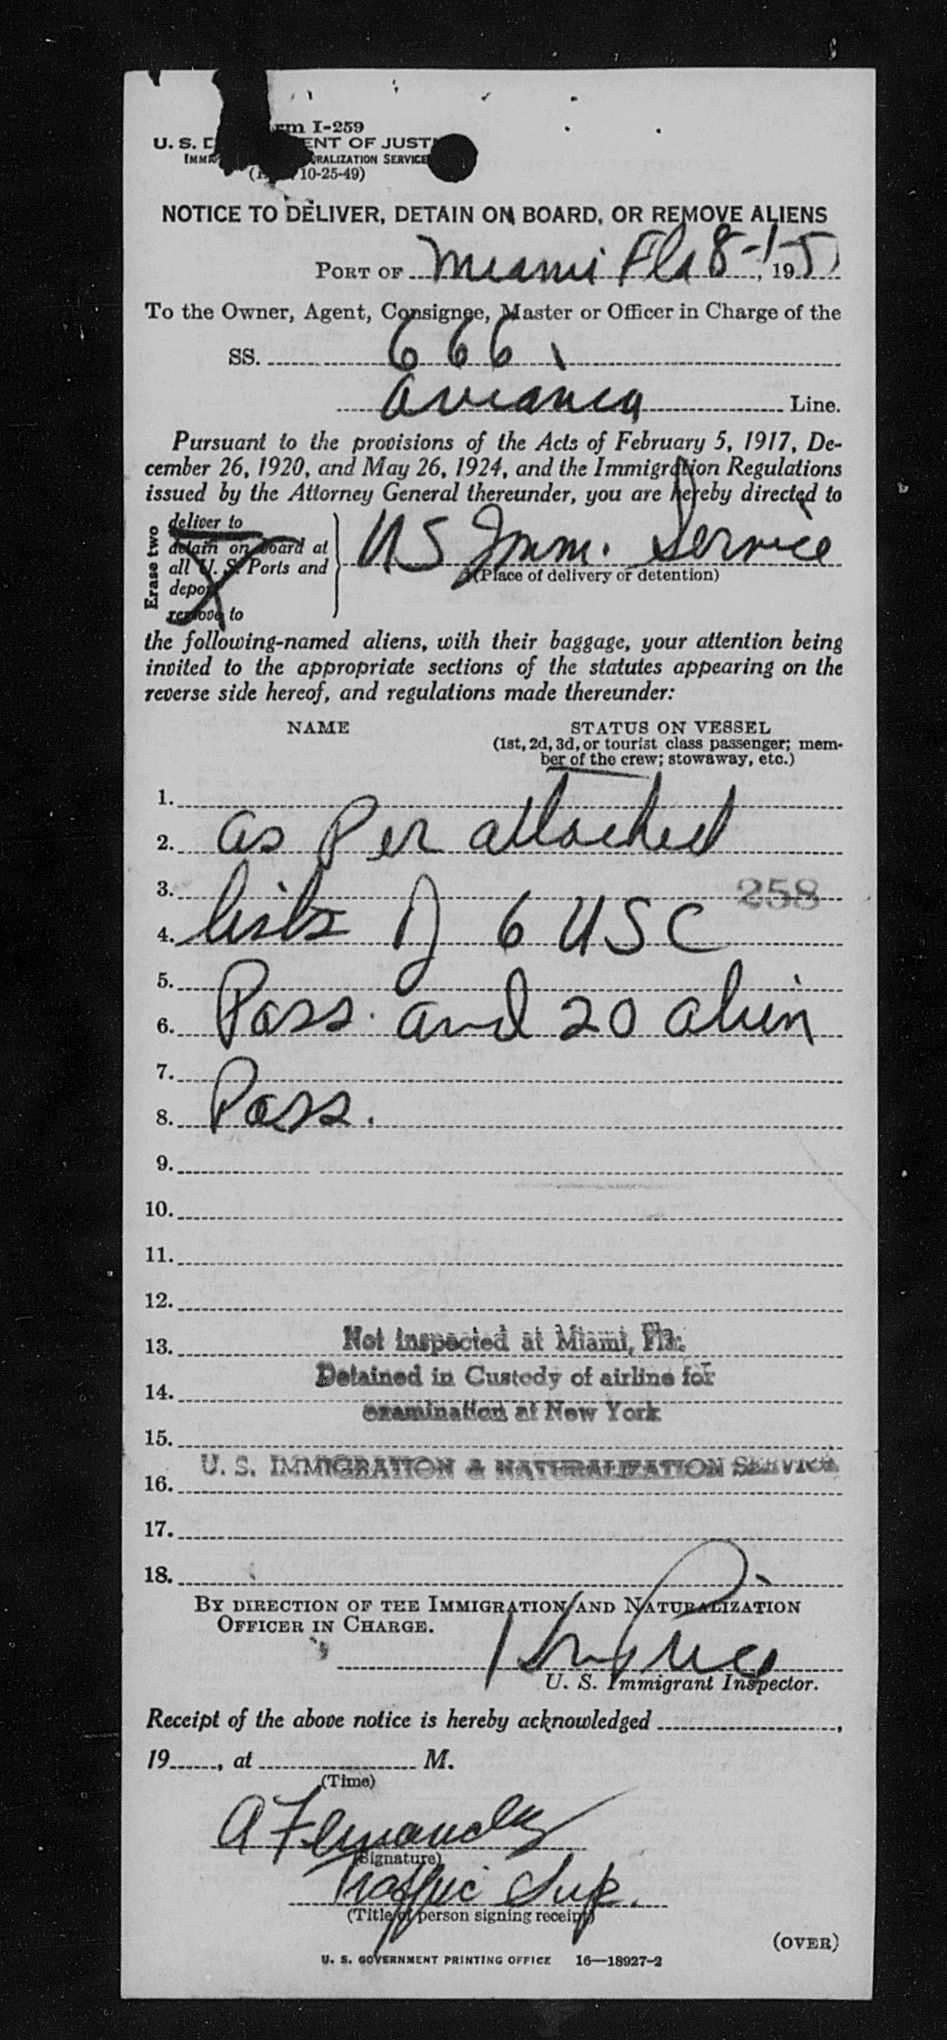 rm I-259
U. S. D ENT OF JUST
IMMI RALIZATION SERVICE
10-25-49)
NOTICE TO DELIVER, DETAIN ON BOARD, OR REMOVE ALIENS
PORT OF Miami Fla 8-1, 195
To the Owner, Agent, Consignee, Master or Officer in Charge of the
SS. 666
Avianca Line.
Pursuant to the provisions of the Acts of February 5, 1917, De-
cember 26, 1920, and May 26, 1924, and the Immigration Regulations
issued by the Attorney General thereunder, you are hereby directed to
Erase two
deliver to
detain on board at
all U. S. Ports and
depor
remove to
US Imm. Service
(Place of delivery or detention)
the following-named aliens, with their baggage, your attention being
invited to the appropriate sections of the statutes appearing on the
reverse side hereof, and regulations made thereunder:
NAME STATUS ON VESSEL
(1st, 2d, 3d, or tourist class passenger; mem-
ber of the crew; stowaway, etc.)
1.
2. as Per attached
3. 258
4. lists of 6 USC
5.
6. Pass. and 20 alien
7.
8. Pass.
9.
10.
11.
12.
13. Not Inspected at Miami, Fla.
Detained in Custody of airline for
14.
examination at New York
15.
U. S. IMMIGRATION & NATURALIZATION SERVICE
16.
17.
18.
BY DIRECTION OF THE IMMIGRATION AND NATURALIZATION
OFFICER IN CHARGE.
Price
U. S. Immigrant Inspector.
Receipt of the above notice is hereby acknowledged ,
19 , at M.
(Time)
A Fernandez
(Signature)
Traffic Sup.
(Title of person signing receipt)
(OVER)
U. S. GOVERNMENT PRINTING OFFICE 16—18927-2